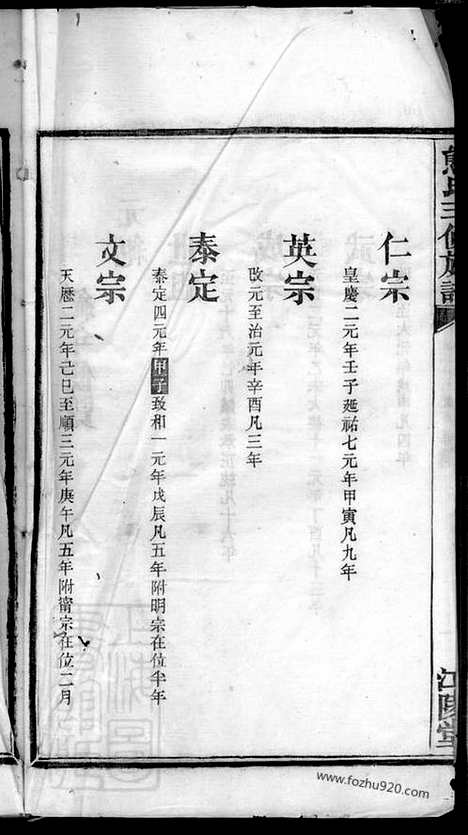 仁宗
皇慶二元年壬子延祐七元年甲寅凡九年
英宗
改元至治元年辛酉凡三年
泰定
泰定四元年甲子致和一元年戊辰凡五年附明宗在位半年
文宗
天厯二元年己巳至順三元年庚午凡五年附甯宗在位二月
氏三修族譜
江陵堂
www.fozhu920.com